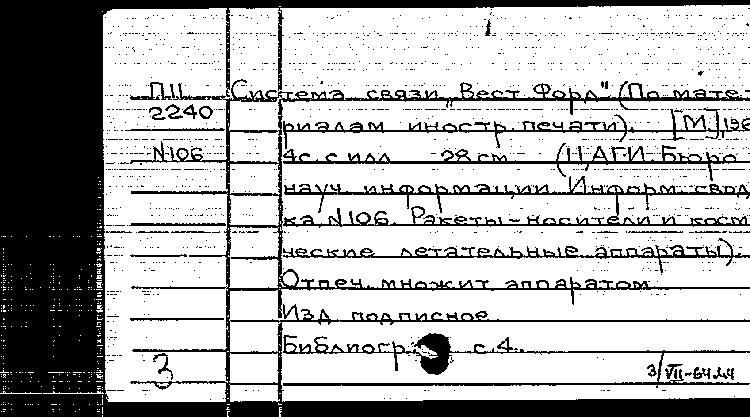 П11 Система связи „Вест Форд" (По мате-
2240 риалам иностр. печати). [М.], 196
N106 4с. с илл 28 см (ЦАГИ. Бюро
науч. информации. Информ. свод
ка N106. Ракеты-носители и косм
ческие летательные аппараты).
Отпеч. множит. аппаратом
Изд. подписное
Библиогр. с. 4.
3
3/VII-64